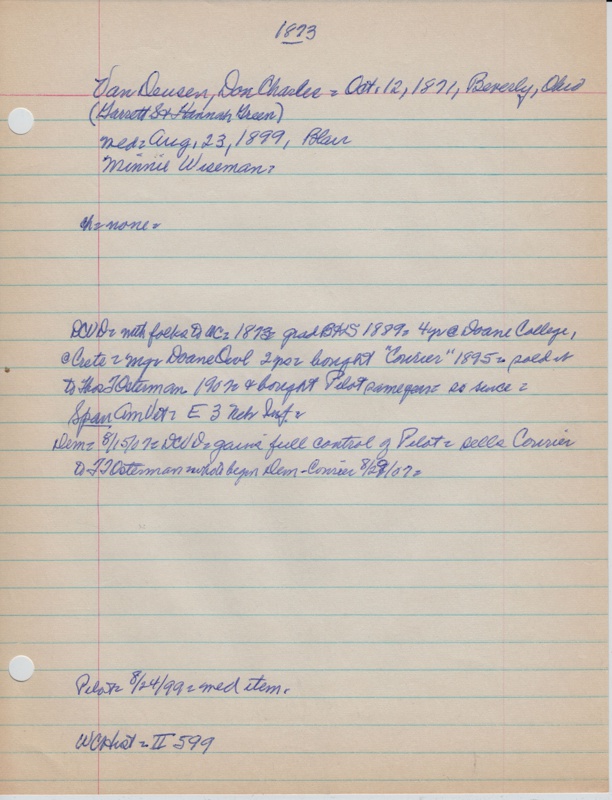 1873
Van Deusen, Don Charles = Oct. 12, 1871, Beverly, Ohio
(Garrett S & Hannah Green)
med = Aug. 23, 1899, Blair
Minnie Wiseman =
ch = none =
DCVD = with folks to WC = 1873 = grad BHS 1889 = 4 yr @ Doane College,
@ Crete = mgr Doane Owl 2 yrs = bought "Courier" 1895 = sold it
to Thos T Osterman 1907 = & bought Pilot same year = so since =
Span Am Vet = E 3 Nebr Inf =
Dem = 8/15/07 = DCVD = gains full control of Pilot = sells Courier
to TT Osterman who'll begin Dem-Courier 8/29/07 =
Pilot = 8/24/99 = med item.
WCHist = II 599